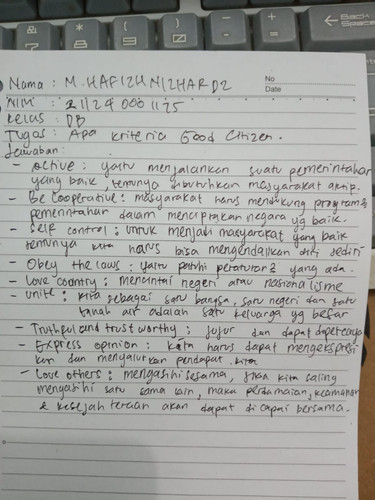 No
Date
Nama : M. HAFIZH NIZHAR DZ
NIM : 21124000 1125
KELAS : DB
Tugas : Apa kriteria Good Citizen.
Jawaban :
- Active : yaitu menjalankan suatu pemerintahan
yang baik, temunya dibutuhkan masyarakat aktip.
- Be Cooperative : masyarakat harus mendukung program2
pemerintahan dalam menciptakan negara yg baik.
- Self control : untuk menjadi masyarakat yang baik
temunya kita harus bisa mengendalikan diri sediri
- Obey the laws : yaitu patuhi peraturan2 yang ada.
- Love Country : mencintai negeri atau nasionalisme
- Unite : kita sebagai satu bangsa, satu negeri dan satu
tanah air adalah satu keluarga yg besar
- Truthful and trust worthy : jujur dan dapat dipercaya
- Express opinion : kita harus dapat mengekspresi
kan dan menyalurkan pendapat kita
- Love others : mengasihi sesama, jikan kita saling
mengasihi satu sama lain, maka perdamaian, keamanan
& kesejahteraan akan dapat di capai bersama.